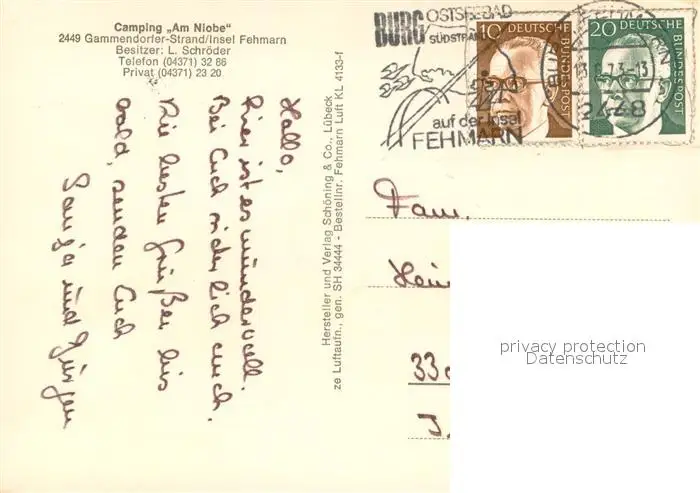 Camping „Am Niobe"
2449 Gammendorfer-Strand/Insel Fehmarn
Besitzer: L. Schröder
Telefon (04371) 32 86
Privat (04371) 23 20
Hallo,
hier ist es wundervoll.
Bei Euch sicherlich auch.
Die besten Grüße bis
bald, senden Euch
Sonja und Jürgen
Hersteller und Verlag Schöning & Co., Lübeck
ze Luftaufn., gen. SH 34444 - Bestellnr. Fehmarn Luft KL 4133-f
BURG OSTSEEBAD
SÜDSTRAND
auf der Insel
FEHMARN
10 DEUTSCHE BUNDESPOST
20 DEUTSCHE BUNDESPOST
2448
Fam.
Hei
33
privacy protection
Datenschutz